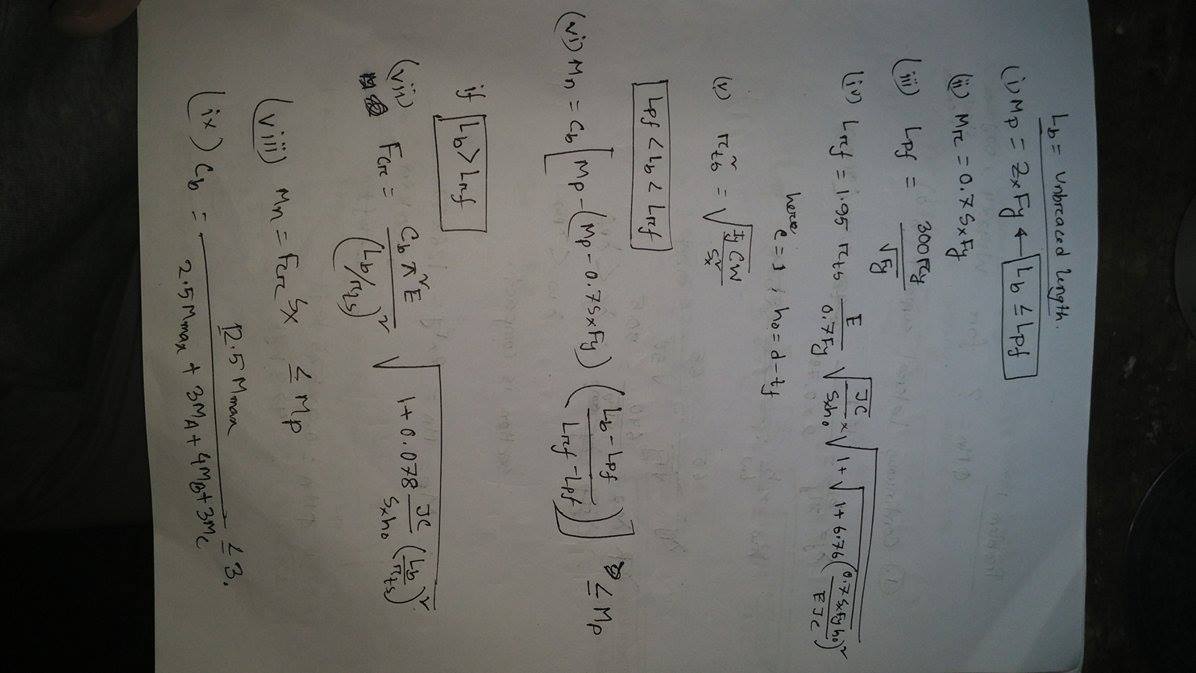 Lb = Unbreaced length.
(i) Mp = Zx Fy ← Lb ≤ Lpf
(ii) Mr = 0.7 Sx Fy
(iii) Lpf = 300 ry / √Fy
(iv) Lrf = 1.95 rts E / 0.7Fy √(JC / Sxho) × √(1 + √(1 + 6.76 (0.7 Sx Fy ho / EJC)²))
here, c = 1, ho = d - tf
(v) rts² = √(Iy Cw) / Sx
Lpf < Lb < Lrf
(vi) Mn = Cb [Mp - (Mp - 0.7 Sx Fy) (Lb - Lpf / Lrf - Lpf)] ≤ Mp
if Lb > Lrf
(vii) Fcr = Cb π² E / (Lb/rts)² √(1 + 0.078 JC / Sxho (Lb / rts)²)
(viii) Mn = Fcr Sx ≤ Mp
(ix) Cb = 12.5 Mmax / 2.5 Mmax + 3MA + 4MB + 3Mc ≤ 3.